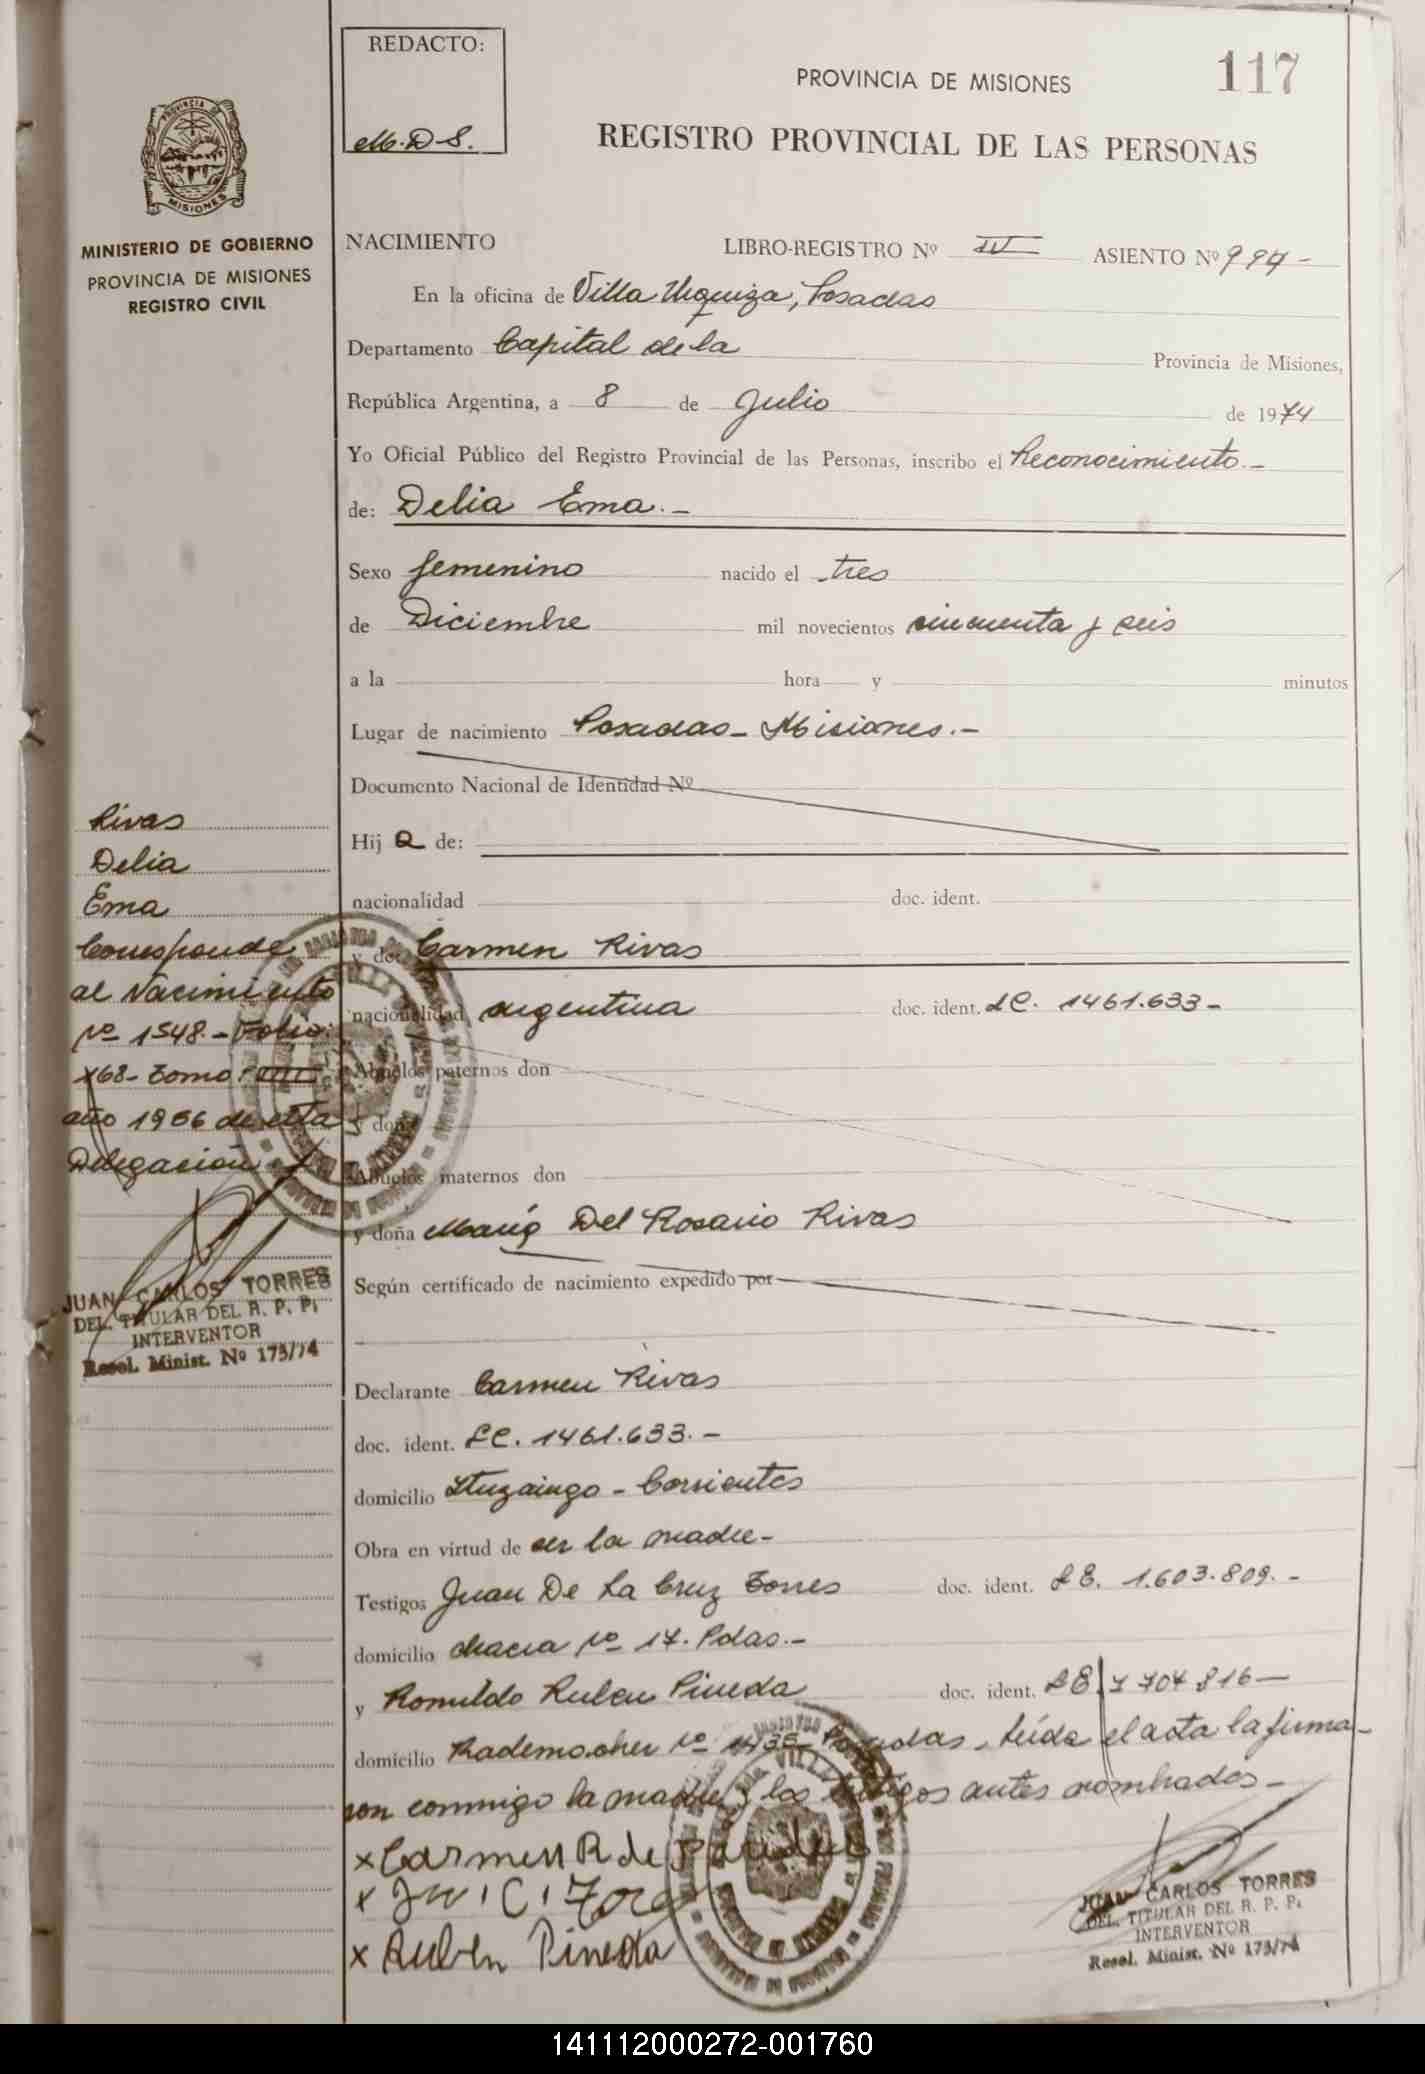 REDACTO:
M.D.S.
117
PROVINCIA DE MISIONES
REGISTRO PROVINCIAL DE LAS PERSONAS
PROVINCIA DE
MISIONES
MINISTERIO DE GOBIERNO
PROVINCIA DE MISIONES
REGISTRO CIVIL
NACIMIENTO LIBRO-REGISTRO Nº ASIENTO Nº 994-
En la oficina de Villa Urquiza, Posadas
Departamento Capital de la Provincia de Misiones,
República Argentina, a 8 de Julio de 1974
Yo Oficial Público del Registro Provincial de las Personas, inscribo el Reconocimiento.-
de: Delia Ema.-
Sexo femenino nacido el tres
de Diciembre mil novecientos cincuenta y seis
a la hora y minutos
Lugar de nacimiento Posadas- Misiones.-
Documento Nacional de Identidad Nº
Hija de:
nacionalidad doc. ident.
y de: Carmen Rivas
nacionalidad argentina doc. ident. LC. 1461.633-
Abuelos paternos don
y doña
Abuelos maternos don
y doña María Del Rosario Rivas
Según certificado de nacimiento expedido por
Declarante Carmen Rivas
doc. ident. LC. 1461.633.-
domicilio Ituzaingo - Corrientes
Obra en virtud de ser la madre-
Testigos Juan De La Cruz Torres doc. ident. LE. 1.603.809.-
domicilio chacra Nº 17. Pdas.-
y Romuldo Ruben Pineda doc. ident. LE 7704816-
domicilio Rademacher Nº Posadas, leída el acta la firma-
con conmigo la madre y los testigos antes nombrados-
x Carmen R de
x
x Ruben Pineda
Rivas
Delia
Ema
Corresponde
al Nacimiento
Nº 1548.- Folio:
168- Tomo:
año 1956 de esta
Delegación
JUAN CARLOS TORRES
DEL. TITULAR DEL R. P. P.
INTERVENTOR
Resol. Minist. Nº 173/74
JUAN CARLOS TORRES
DEL. TITULAR DEL R. P. P.
INTERVENTOR
Resol. Minist. Nº 173/74
141112000272-001760